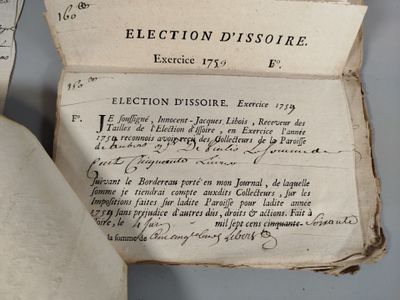 160
ELECTION D'ISSOIRE.
Exercice 1759 Fo.
ELECTION D'ISSOIRE. Exercice 1759
Fo. JE soussigné, Innocent-Jacques Libois, Receveur des
Tailles de l'Election d'Issoire, en Exercice l'année
1759 reconnois avoir reçu des Collecteurs de la Paroisse
de La Somme de
Cent Cinquante Livres
Suivant le Bordereau porté en mon Journal, de laquelle
somme je tiendrai compte auxdits Collecteurs, sur les
Impositions faites sur ladite Paroisse pour ladite année
1759 sans préjudice d'autres dûs, droits & actions. Fait à
Issoire, le 4 juin mil sept cens cinquante Soixante
la somme de Libois